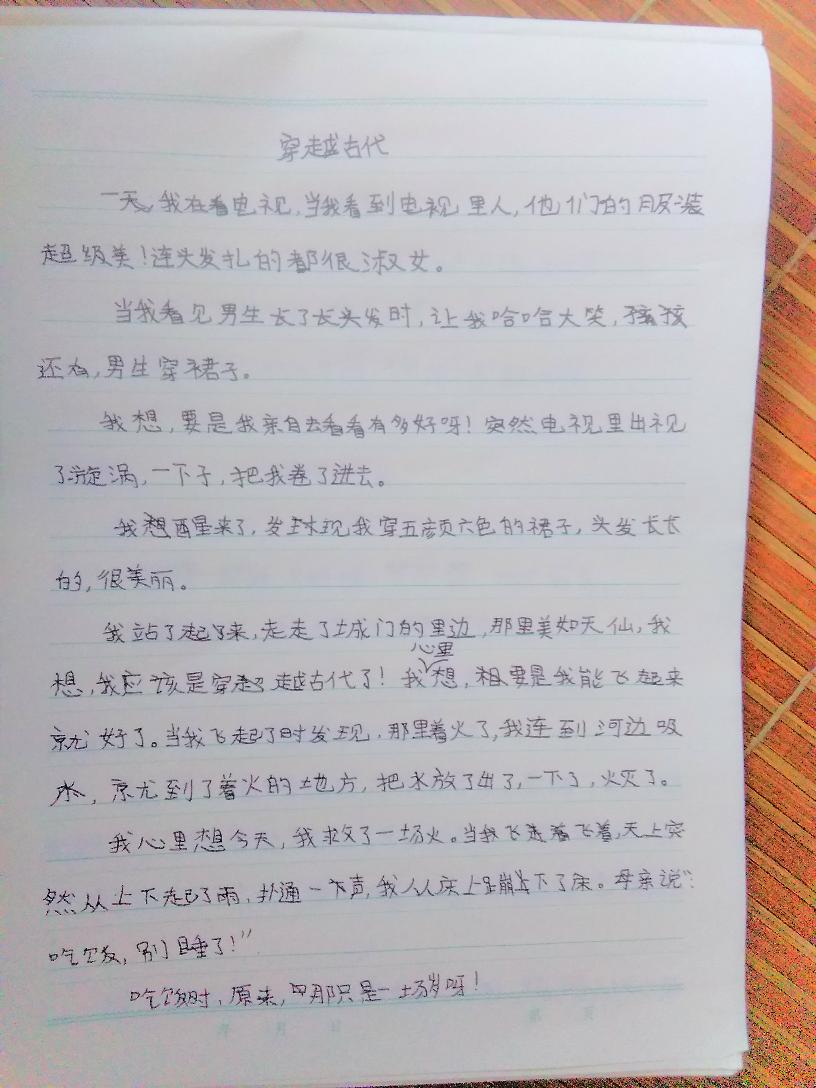 穿越古代
一天,我在看电视,当我看到电视里人,他们的服装
超级美!连头发扎的都很淑女。
当我看见男生长了长头发时,让我哈哈大笑,孩
还有,男生穿裙子。
我想,要是我亲自去看看有多好呀!突然电视里出视
了漩涡,一下子,把我卷了进去。
我想醒来了,发现我穿五颜六色的裙子,头发长长
的,很美丽。
我站了起来,走走了城门的里边,那里美如天仙,我
想,我应该是穿越古代了!我心里想,要是我能飞起来
就好了。当我飞起了时发现,那里着火了,我连到河边吸
水,就到了着火的地方,把水放了出了,一下了,火灭了。
我心里想今天,我救了一场火。当我飞着飞着,天上突
然从上下起了雨,扑通一下声,我从床上蹦下了床。母亲说“:
吃饭,别睡了!”
吃饭时,原来,那只是一场梦呀!
年 月 日 第 页